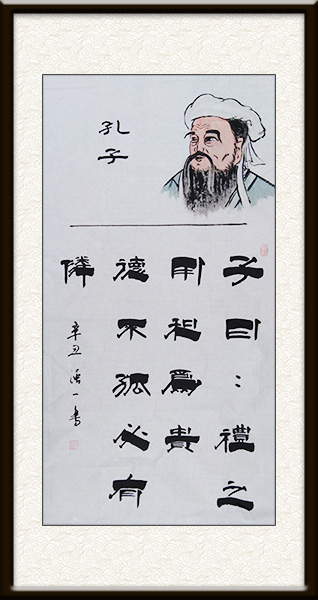 孔子
子曰：禮之
用和爲貴
德不孤必有
隣
辛丑 一書